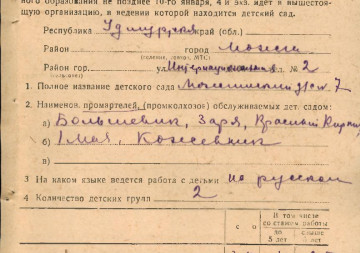 ного образования не позднее 10-го января, 4 и экз. идет в вышестоя-
щую организацию, в ведении которой находится детский сад.
Республика Удмурская край (обл.)
Район город Можга
(селение, город, АТС)
Район гор. ул. Интернациональная № 2
1. Полное название детского сада Можгинский д/с № 7
2. Наименов. промартелей, (промколхозов) обслуживаемых дет. садом:
а) Большевик, Заря, Красный
б) 1 мая, Кожевник
в)
3 На каком языке ведется работа с детьми на русском
4 Количество детских групп 2
с о В том числе
со стажем работы
до 5 лет свыше